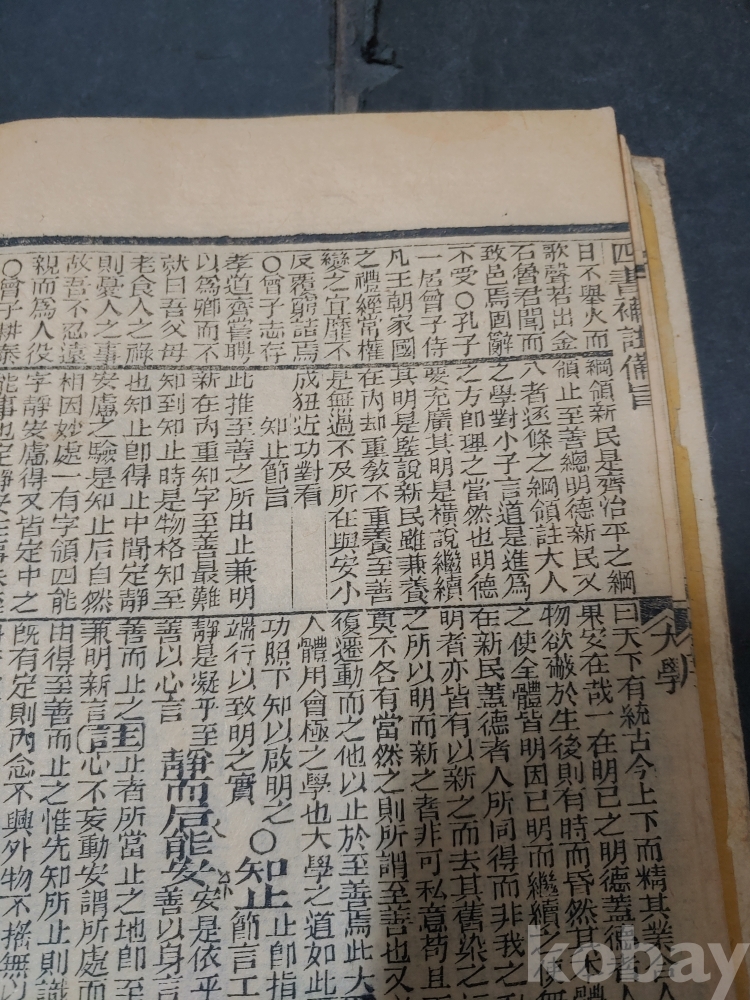 四書補註備旨
大學
日不舉火而
歌聲若出金
石魯君聞而
致邑焉固辭
不受〇孔子
一居曾子侍
凡王朝家國
之禮經常權
變之宜靡不
反覆窮詰焉
〇曾子志存
孝道齊嘗聘
以為卿而不
就曰吾父母
老食人之祿
則憂人之事
故吾不忍遠
親而為人役
〇曾子耕泰
綱領新民是齊治平之綱
領止至善總明德新民又
八者逐條之綱領註大人
之學對小子言道是進為
之方即理之當然也明德
要充廣其明是橫說繼續
其明是監說新民雖兼養
在內却重敎不重養至善
是無過不及所在與安小
成狃近功對看
知止節旨
此推至善之所由止兼明
新在內重知字至善最難
知到知止時是物格知至
也知止即得止中間定靜
安慮之驗是知止后自然
相因妙處一有字領四能
字靜安慮得又皆定中之
能事也定靜安在事未至
曰天下有統古今上下而精其業合人
果安在哉一在明已之明德蓋德者人
物欲蔽於生後則有時而昏然其本體
之使全體皆明因已明而繼續
在新民蓋德者人所同得而非我之
明者亦皆有以新之而去其舊染之
之所以明而新之者非可私意苟且
莫不各有當然之則所謂至善也又
復遷動而之他以止於至善焉此大
人體用會極之學也大學之道如此
功照下知以啟明之〇知止節言工
端行以致明之實 止即指
靜是凝乎至 靜而后能安安是依乎
善以心言 善以身言
善而止之註止者所當止之地即至
兼明新言 心不妄動安謂所處而
由得至善而止之惟先知所止則識
既有定則內念不興外物不搖無以